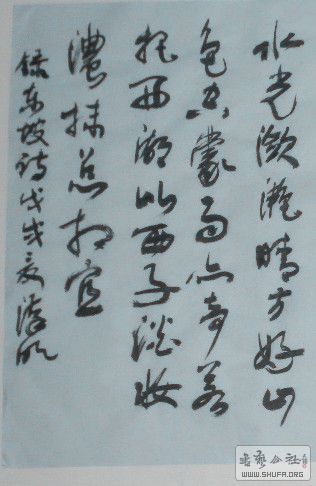 水光潋滟晴方好山
色空蒙雨亦奇若
把西湖比西子淡妆
濃抹总相宜
録东坡诗戊戌夏
書藝公社
WWW.SHUFA.ORG